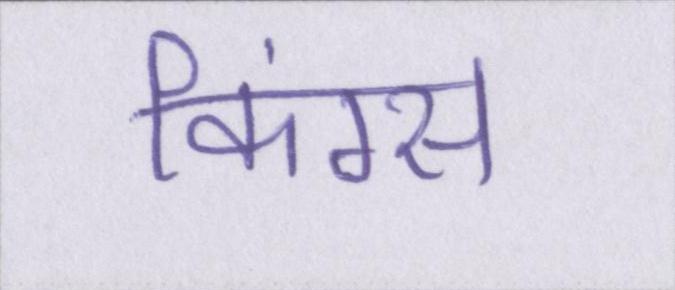 किंग्स